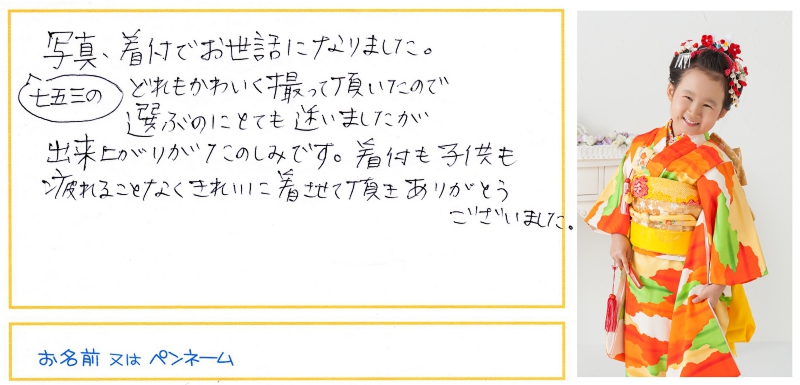 写真、着付でお世話になりました。
七五三の
どれもかわいく撮って頂いたので
選ぶのにとても迷いましたが
出来上がりがたのしみです。着付も子供も
疲れることなくきれいに着せて頂きありがとう
ございました。
お名前 又は ペンネーム